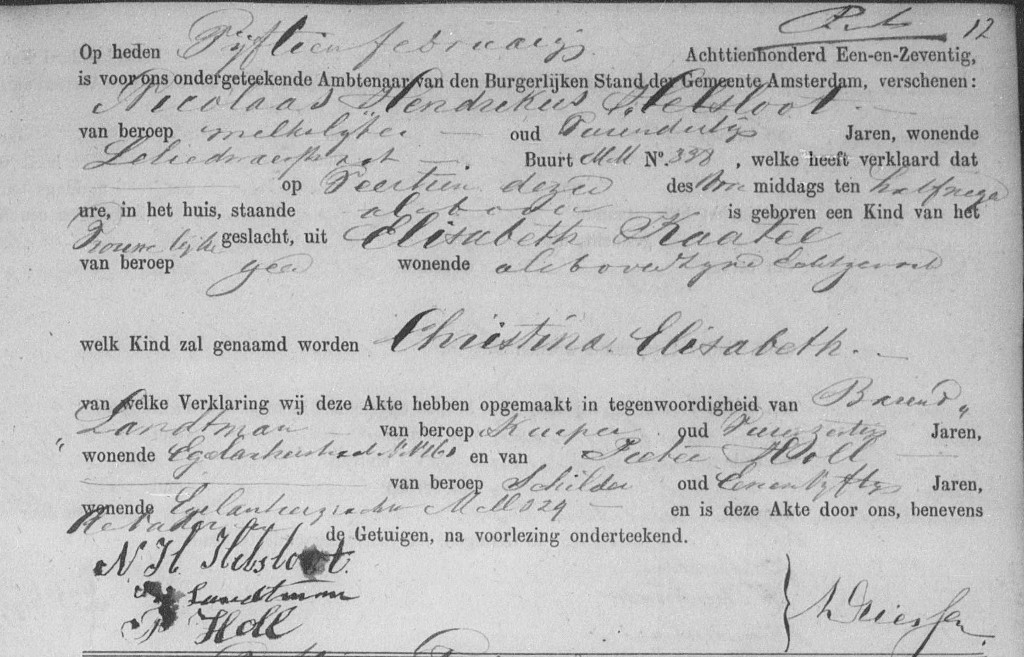 12
Op heden Vijftien februarij Achttienhonderd Een-en-Zeventig,
is voor ons ondergeteekende Ambtenaar van den Burgerlijken Stand der Gemeente Amsterdam, verschenen:
Nicolaas Hendrikus Helsloot
van beroep melkslyter oud Jaren, wonende
Leliedwarsstraat Buurt MM No. 338, welke heeft verklaard dat
op Veertien dezer des Voor middags ten half nege
ure, in het huis, staande alsboven is geboren een Kind van het
Vrouwelyke geslacht, uit Elisabeth Kaatee
van beroep geen wonende alsboven zyne Echtgenoot
welk Kind zal genaamd worden Christina Elisabeth.
van welke Verklaring wij deze Akte hebben opgemaakt in tegenwoordigheid van Barend
Landtman van beroep Kuiper oud Jaren,
wonende en van Pieter Holl
van beroep Schilder oud Eenenvyftig Jaren,
wonende Egelantiersgracht MM 029 en is deze Akte door ons, benevens
de Vader en de Getuigen, na voorlezing onderteekend.
N H Helsloot
B Landtman
P Holl